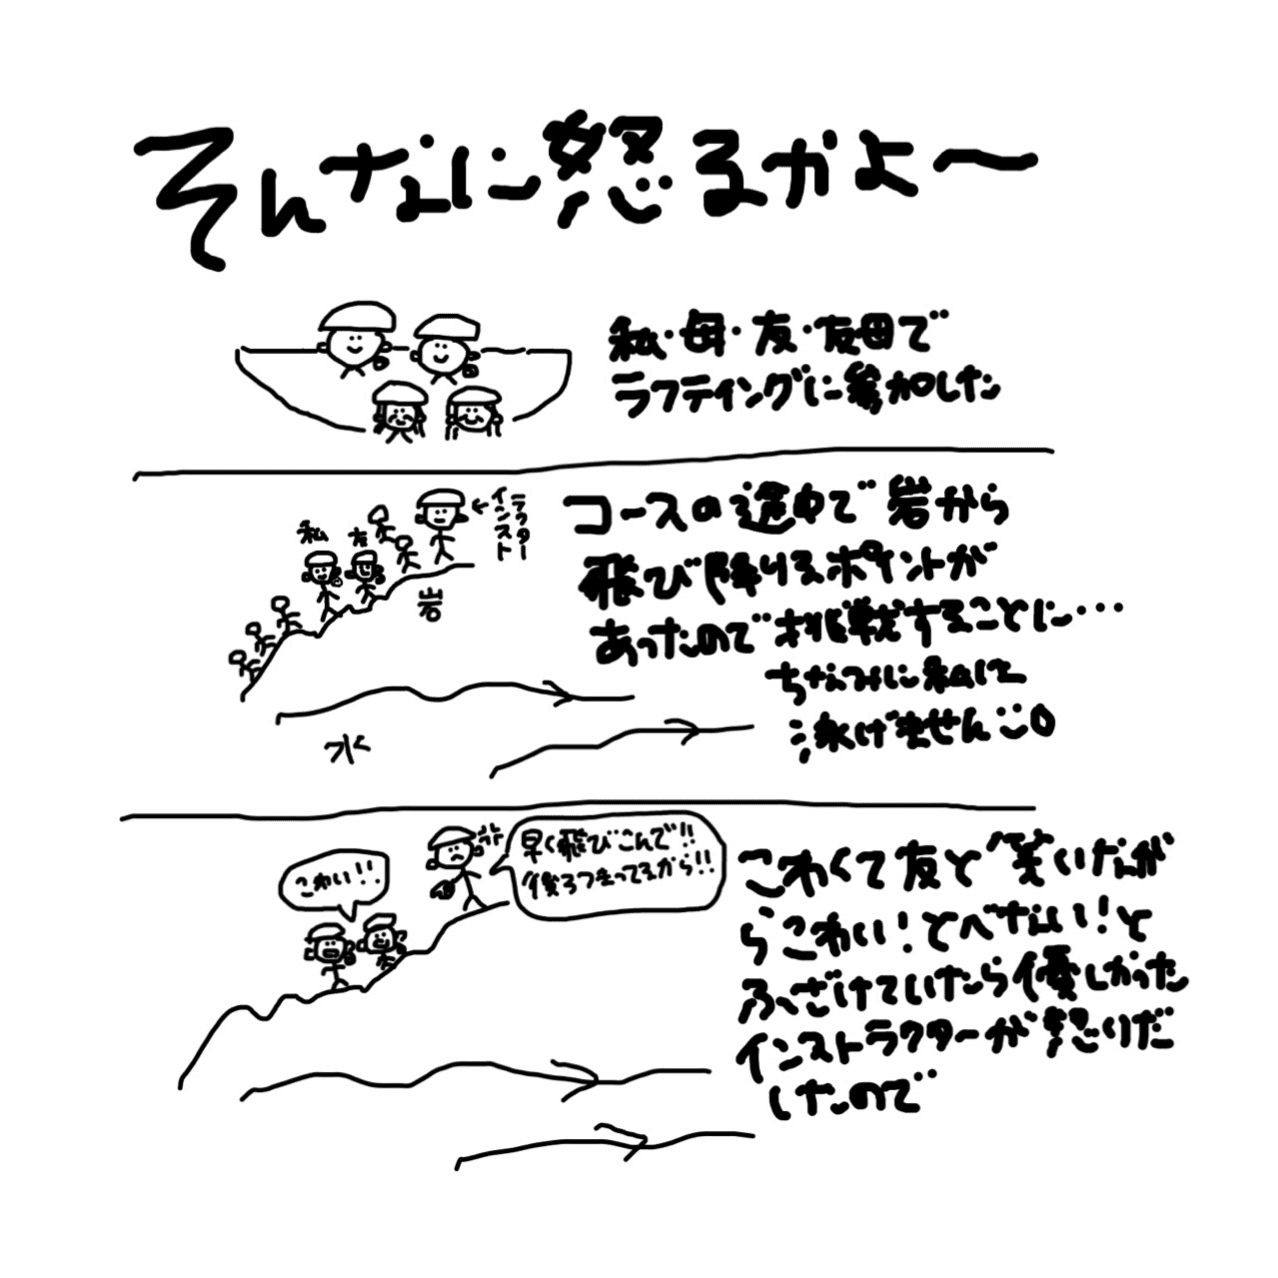 そんなに怒るかよ〜
私・母・友・友母で
ラフティングに参加した
インスト
ラクター
私
友
岩
水
コースの途中で岩から
飛び降りるポイントが
あったので挑戦することに・・・
ちなみに私は
泳げません
こわい!!
早く飛びこんで!!
後ろつまってるから!!
こわくて友と笑いなが
らこわい!とべない!と
ふざけていたら優しかった
インストラクターが怒りだ
したので